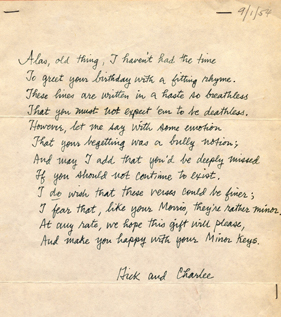 9/1/54
Alas, old thing, I haven't had the time
To greet your birthday with a fitting rhyme.
These lines are written in a haste so breathless
That you must not expect 'em to be deathless.
However, let me say with some emotion
That your begetting was a bully notion;
And may I add that you'd be deeply missed
If you should not continue to exist.
I do wish that these verses could be finer;
I fear that, like your Morris, they're rather minor.
At any rate, we hope this gift will please,
And make you happy with your Minor Keys.
Dick and Charlee